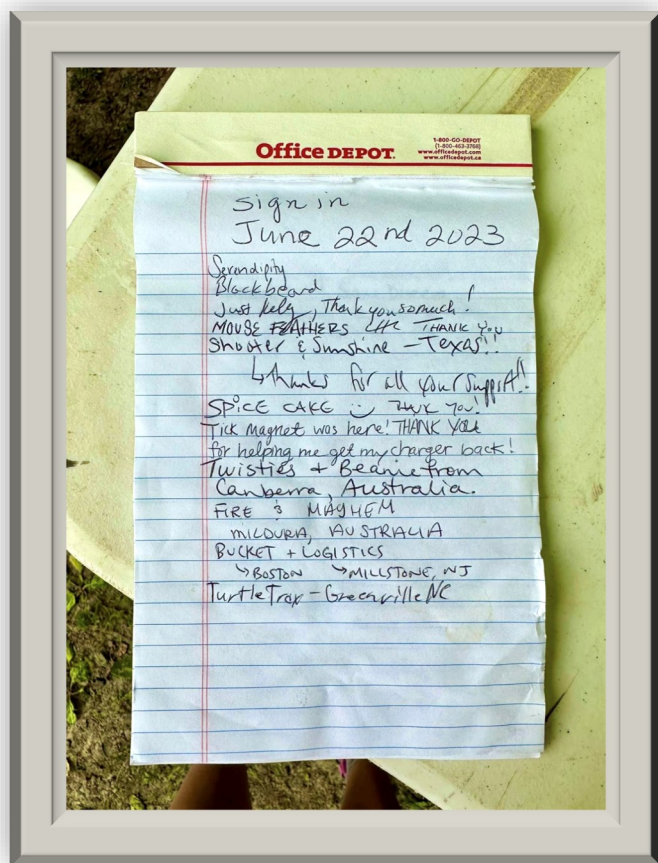 Office DEPOT.
1-800-GO-DEPOT
(1-800-463-3768)
www.officedepot.com
www.officedepot.ca
Sign in
June 22nd 2023
Serendipity
Blackbeard
Just Kely, Thank you so much!
MOUSE FEATHERS THANK YOU
Shooter & Sunshine - Texas!!
↳ thanks for all your support!!
SPICE CAKE :) THANK YOU!
Tick Magnet was here! THANK YOU
for helping me get my charger back!
Twisties + Beanie from
Canberra, Australia.
FIRE & MAYHEM
MILDURA, AUSTRALIA
BUCKET + LOGISTICS
↳ BOSTON ↳ MILLSTONE, NJ
Turtle Trax - Greenville NC